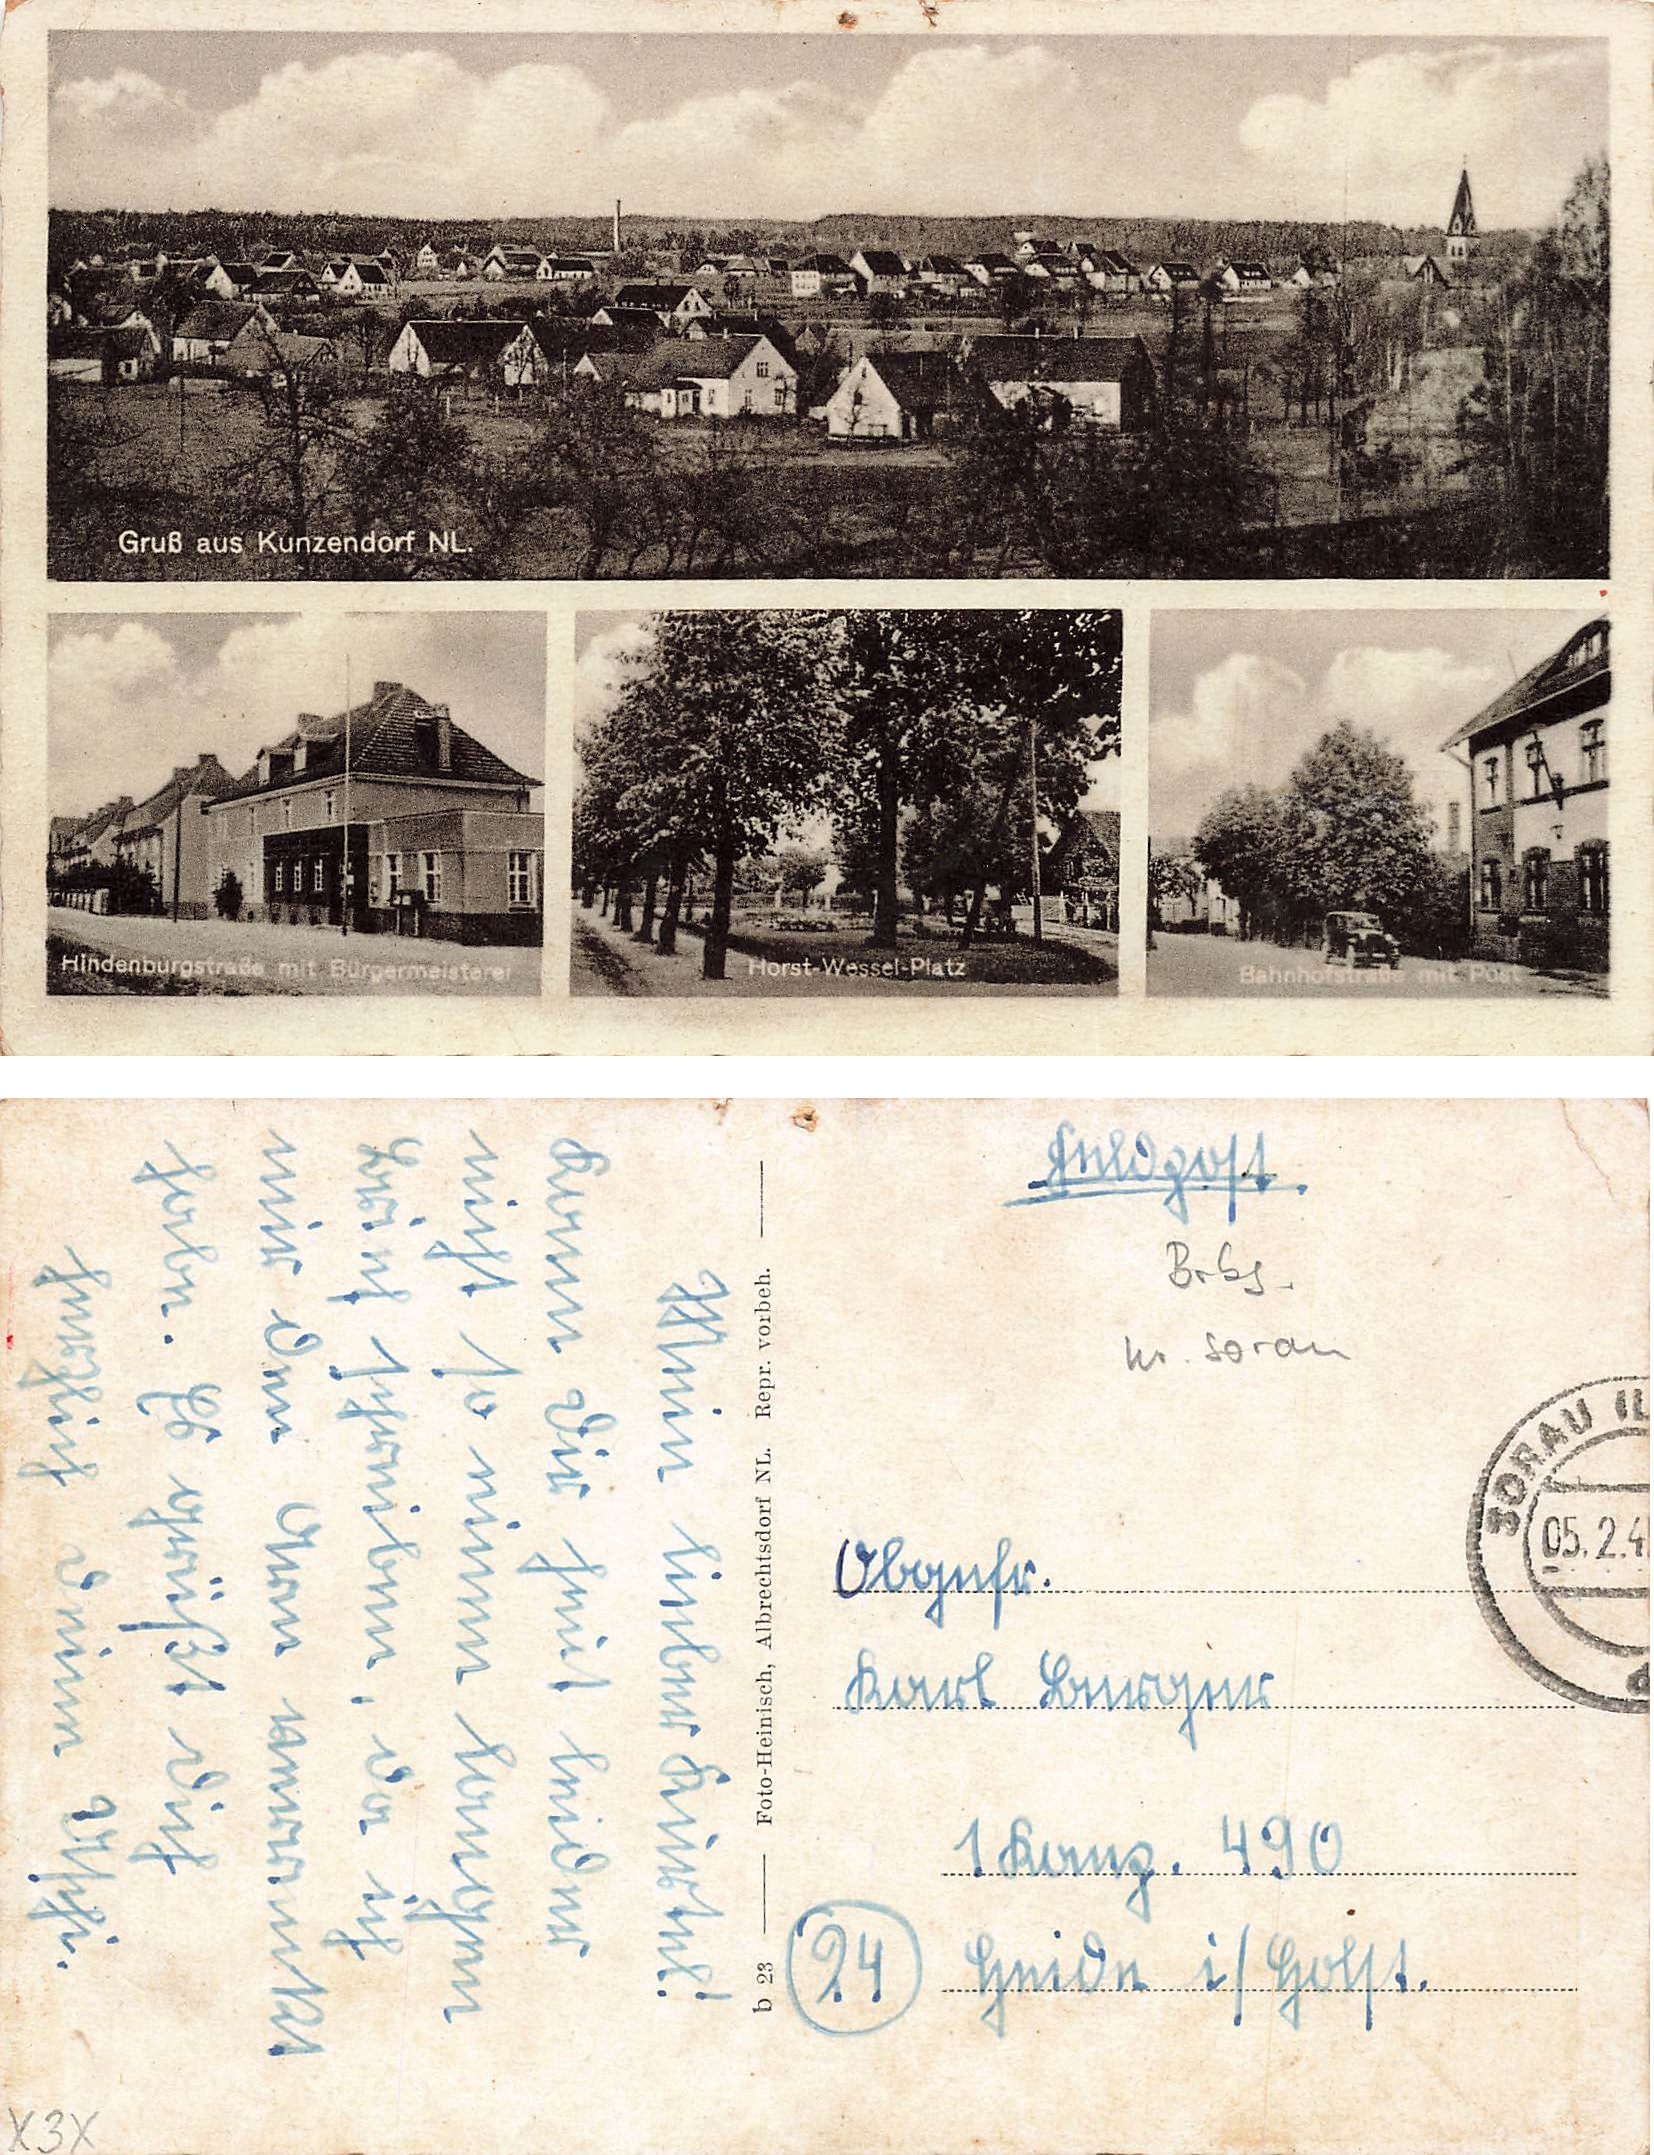 Gruß aus Kunzendorf NL.
Hindenburgstraße mit Bürgermeisterei
Horst-Wessel-Platz
Bahnhofstraße mit Post
Mein lieber
kann Dir heut leider
nicht so einen langen
Brief schreiben, da ich
mir den Arm verrenkt
habe. Es grüßt Dich
herzlich Deine
b 23 Foto-Heinisch, Albrechtsdorf NL. Repr. vorbeh.
Feldpost.
Brbg.
Kr. Sorau
SORAU
05.2.4
Obgefr.
Karl Berger
490
24
Heide i/Holst.
X3X